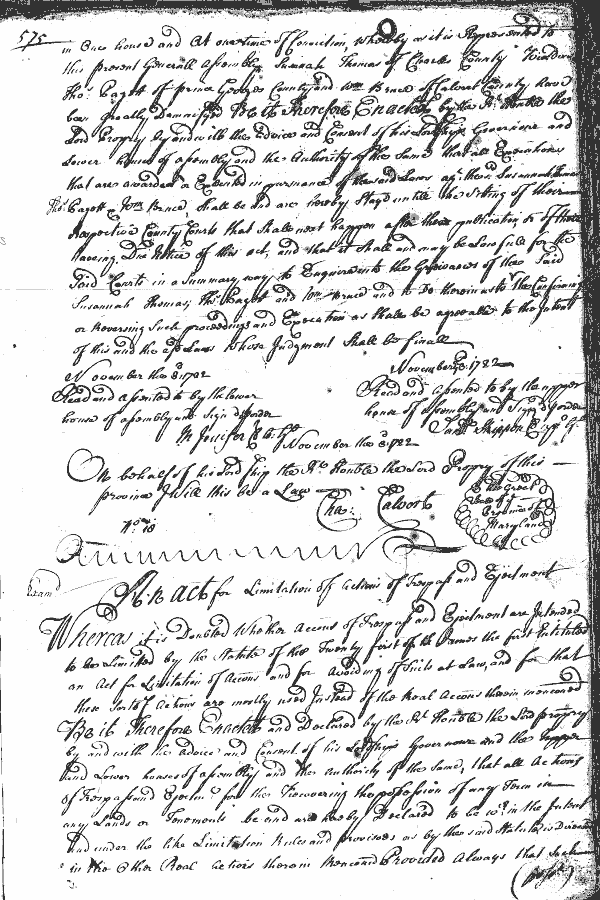 575
in One house and At one time of Conviction, Whereby as it is Represented to
this present Generall Assembly Susanah Thomas of Charles County Widdow
Tho: Bagott of prince Georges County and Wm Bruce of Calvert County have
been greatly Damnifyed Be it Therefore Enacted by the Rt Honble the
Lord Propry by and with the Advice and Consent of his Lordships Governour and
Lower house of assembly and the Authority of the Same that all Executions
that are awarded or Executed in pursuance of the said Laws agt them Susannah Thomas
Tho: Bagott & Wm Bruce, Shall be and are hereby Stayd untill the Sitting of their
respective County Courts that Shall next happen after the publication of these
having Due Notice of this act, and that it Shall and may be Lawfull for the
Said Courts in a Summary way to Enquire into the Grievances of the Said
Susannah Thomas, Tho: Bagott and Wm Bruce and to Do therein as to the Confirming
or Reversing Such proceedings and Execution as Shall be agreeable to the Intent
of this and the afd Laws whose Judgment Shall be finall
November the 3. 1722
Read and assented to by the Lower
house of assembly and Signd Order
M Jenifer Cl: lo: h
November 3. 1722
Read and assented to by the upper
house of assembly and Signd Order
Saml Skippon Cl up h
November the 3. 1722
On behalf of his Lordship the Rt Honble the Lord Propry of this
province I will this be a Law
Cha: Calvert
The Great
Seal of ye
Province of
Maryland
No: 18
Exam
An Act for Limitation of Actions of Trespass and Ejectment
Whereas it is Doubted Whether Accons of Trespass and Ejectment are Intended
to be Limited by the Statute of the Twenty first of K James the first Intituled
an Act for Limitation of Accons and for Avoiding of Suits at Law, and for that
these Sort of Actions are mostly used Instead of the Real Accons therein menconed
Be it Therefore Enacted and Declared by the Rt Honble the Lord propry
by and with the Advice and Consent of his Lordships Governour and the upper
and Lower houses of assembly and the Authority of the Same, that all Actions
of Trespass and Ejectmt for the Recovering the possession of any Term in
any Lands or Tenements be and are hereby Declared to be wth in the Intent
and under the like Limitation Rules and provisoes as by the said Statute is Directed
in the Other Real Actions therein Menconed Provided Always that Such